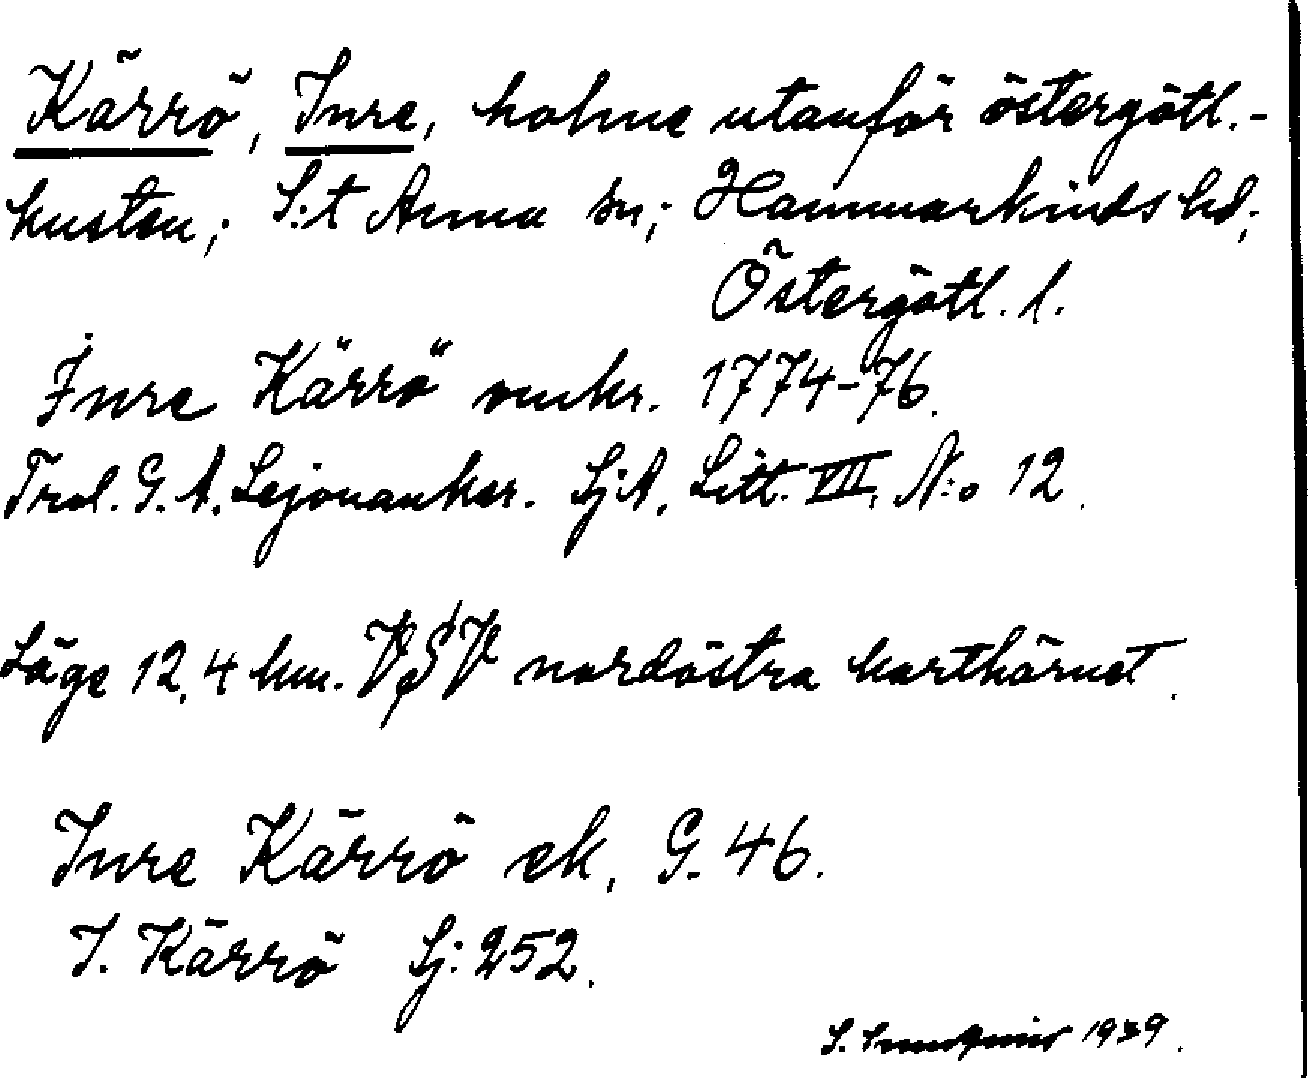 Kärrö, Inre, holme utanför östergötl.-
kusten; S:t Anna sn; Hammarkinds hd;
Östergötl. l.
Inre Kärrö omkr. 1774-76.
Trol. G. A. Lejonanker. SjA. Litt. VII. N:o 12.
Läge 12,4 km. VSV nordöstra karthörnet.
Inre Kärrö ek. G. 46.
I. Kärrö Sj: 252.
S. 1939.